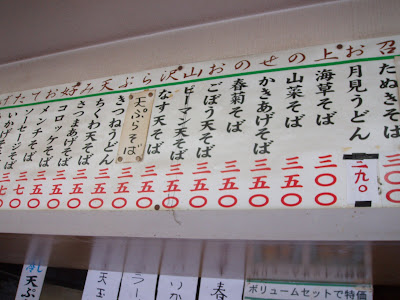 げたてお好み天ぷら沢山おのせの上お召
たぬきそば
三〇〇
月見うどん
九〇
海草そば
山菜そば
三五〇
かきあげそば
三五〇
春菊そば
三五〇
ごぼう天そば
三五〇
ピーマン天そば
三五〇
なす天そば
三五〇
天ぷらそば
三五〇
きつねうどん
三五〇
ちくわ天そば
三五〇
さつまあげそば
三五〇
コロッケそば
三五〇
メンチそば
三五〇
ソーセージそば
ボリュームセットで特価
春
天玉
天ぷ